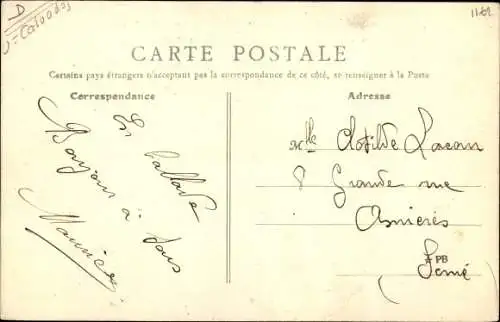 D
J = Calvados
1162
CARTE POSTALE
Certains pays étrangers n'acceptant pas la correspondance de ce côté, se renseigner à la Poste
Correspondance
Adresse
En ballade
Bonjour à tous
Maurice
Mlle Clotilde
8 Grande rue
Asnières
PB
Seine